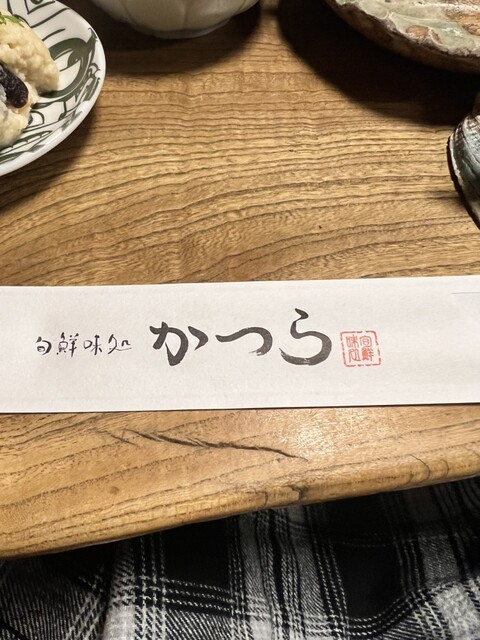 旬鮮味処 かつら
旬鮮味処